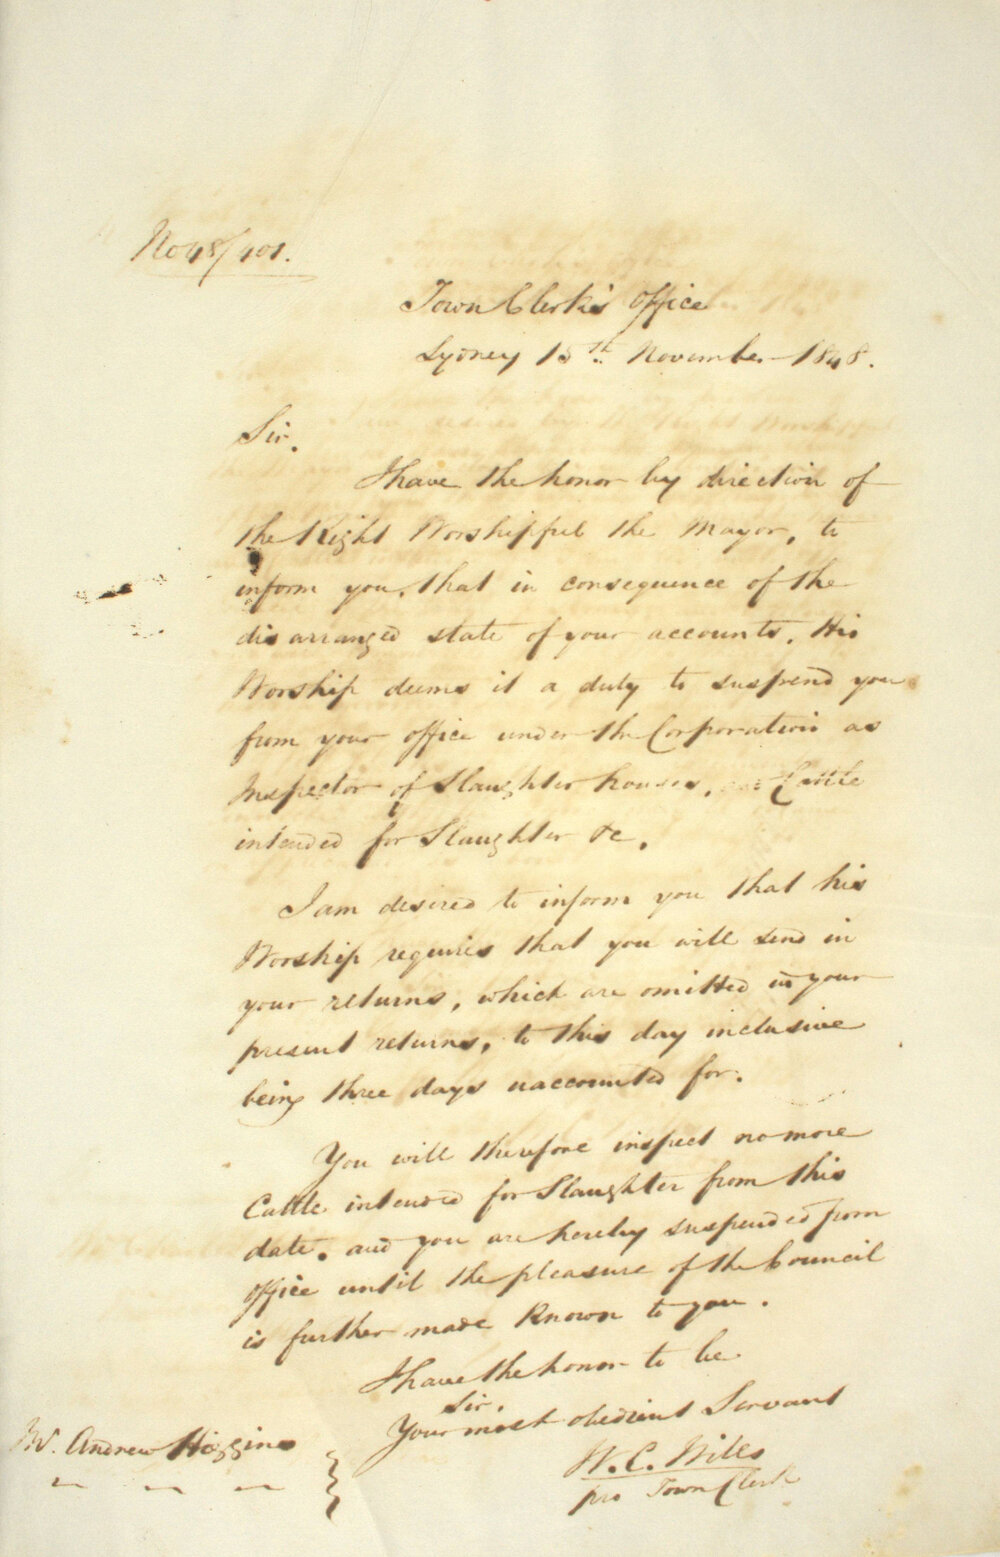 No 48/401.
Town Clerk's Office
Sydney 15th November 1848.
Sir,
I have the honor by direction of
the Right Worshipful the Mayor, to
inform you, that in consequence of the
disarranged state of your accounts, His
Worship deems it a duty to suspend you
from your office under the Corporation as
Inspector of Slaughter houses, Cattle
intended for Slaughter &c,
I am desired to inform you that his
Worship requires that you will send in
your returns, which are omitted in your
present returns, to this day inclusive
being three days uaccounted for.
You will therefore inspect no more
Cattle intended for Slaughter from this
date, and you are hereby suspended from
office until the pleasure of the Council
is further made known to you.
I have the honor to be
Sir,
Your most obedient Servant
W. C. Wills
pro Town Clerk
Mr. Andrew Higgins